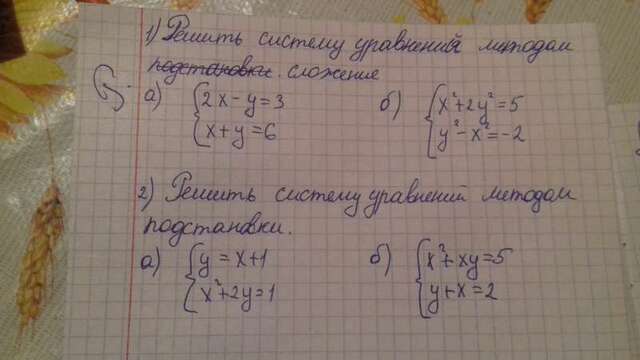 1) Решить систему уравнений методом
подстановки. сложение
а) { 2x - y = 3
{ x + y = 6
б) { x² + 2y² = 5
{ y² - x² = -2
2) Решить систему уравнений методом
подстановки.
а) { y = x + 1
{ x² + 2y = 1
б) { x² + xy = 5
{ y + x = 2